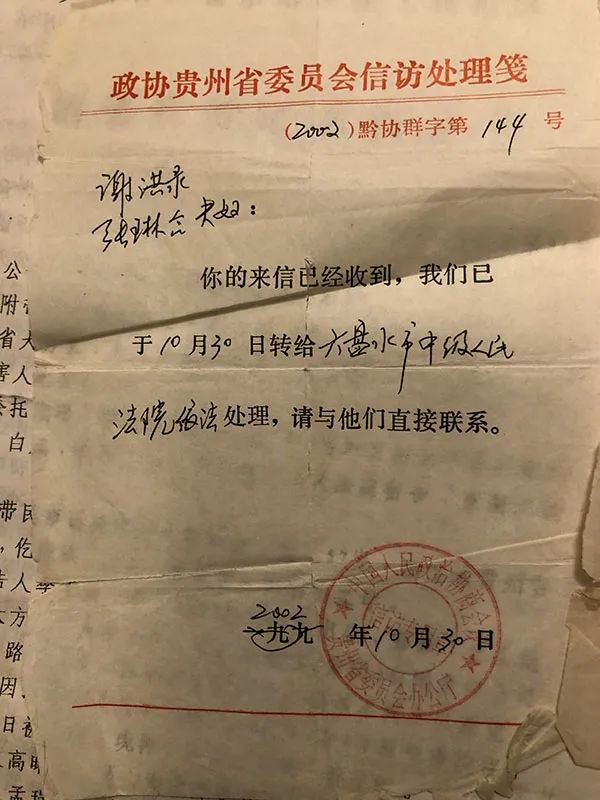 政协贵州省委员会信访处理笺
(2002)黔协群字第 144 号
谢洪录
张琳会 夫妇:
你的来信已经收到,我们已
于10月30日转给六盘水市中级人民
法院依法处理,请与他们直接联系。
中国人民政治协商会议
贵州省委员会办公厅
2002
一九九 年10月30日
公
附
省
害人
委托
白
带民
告人
方
路
因
日
高
孟